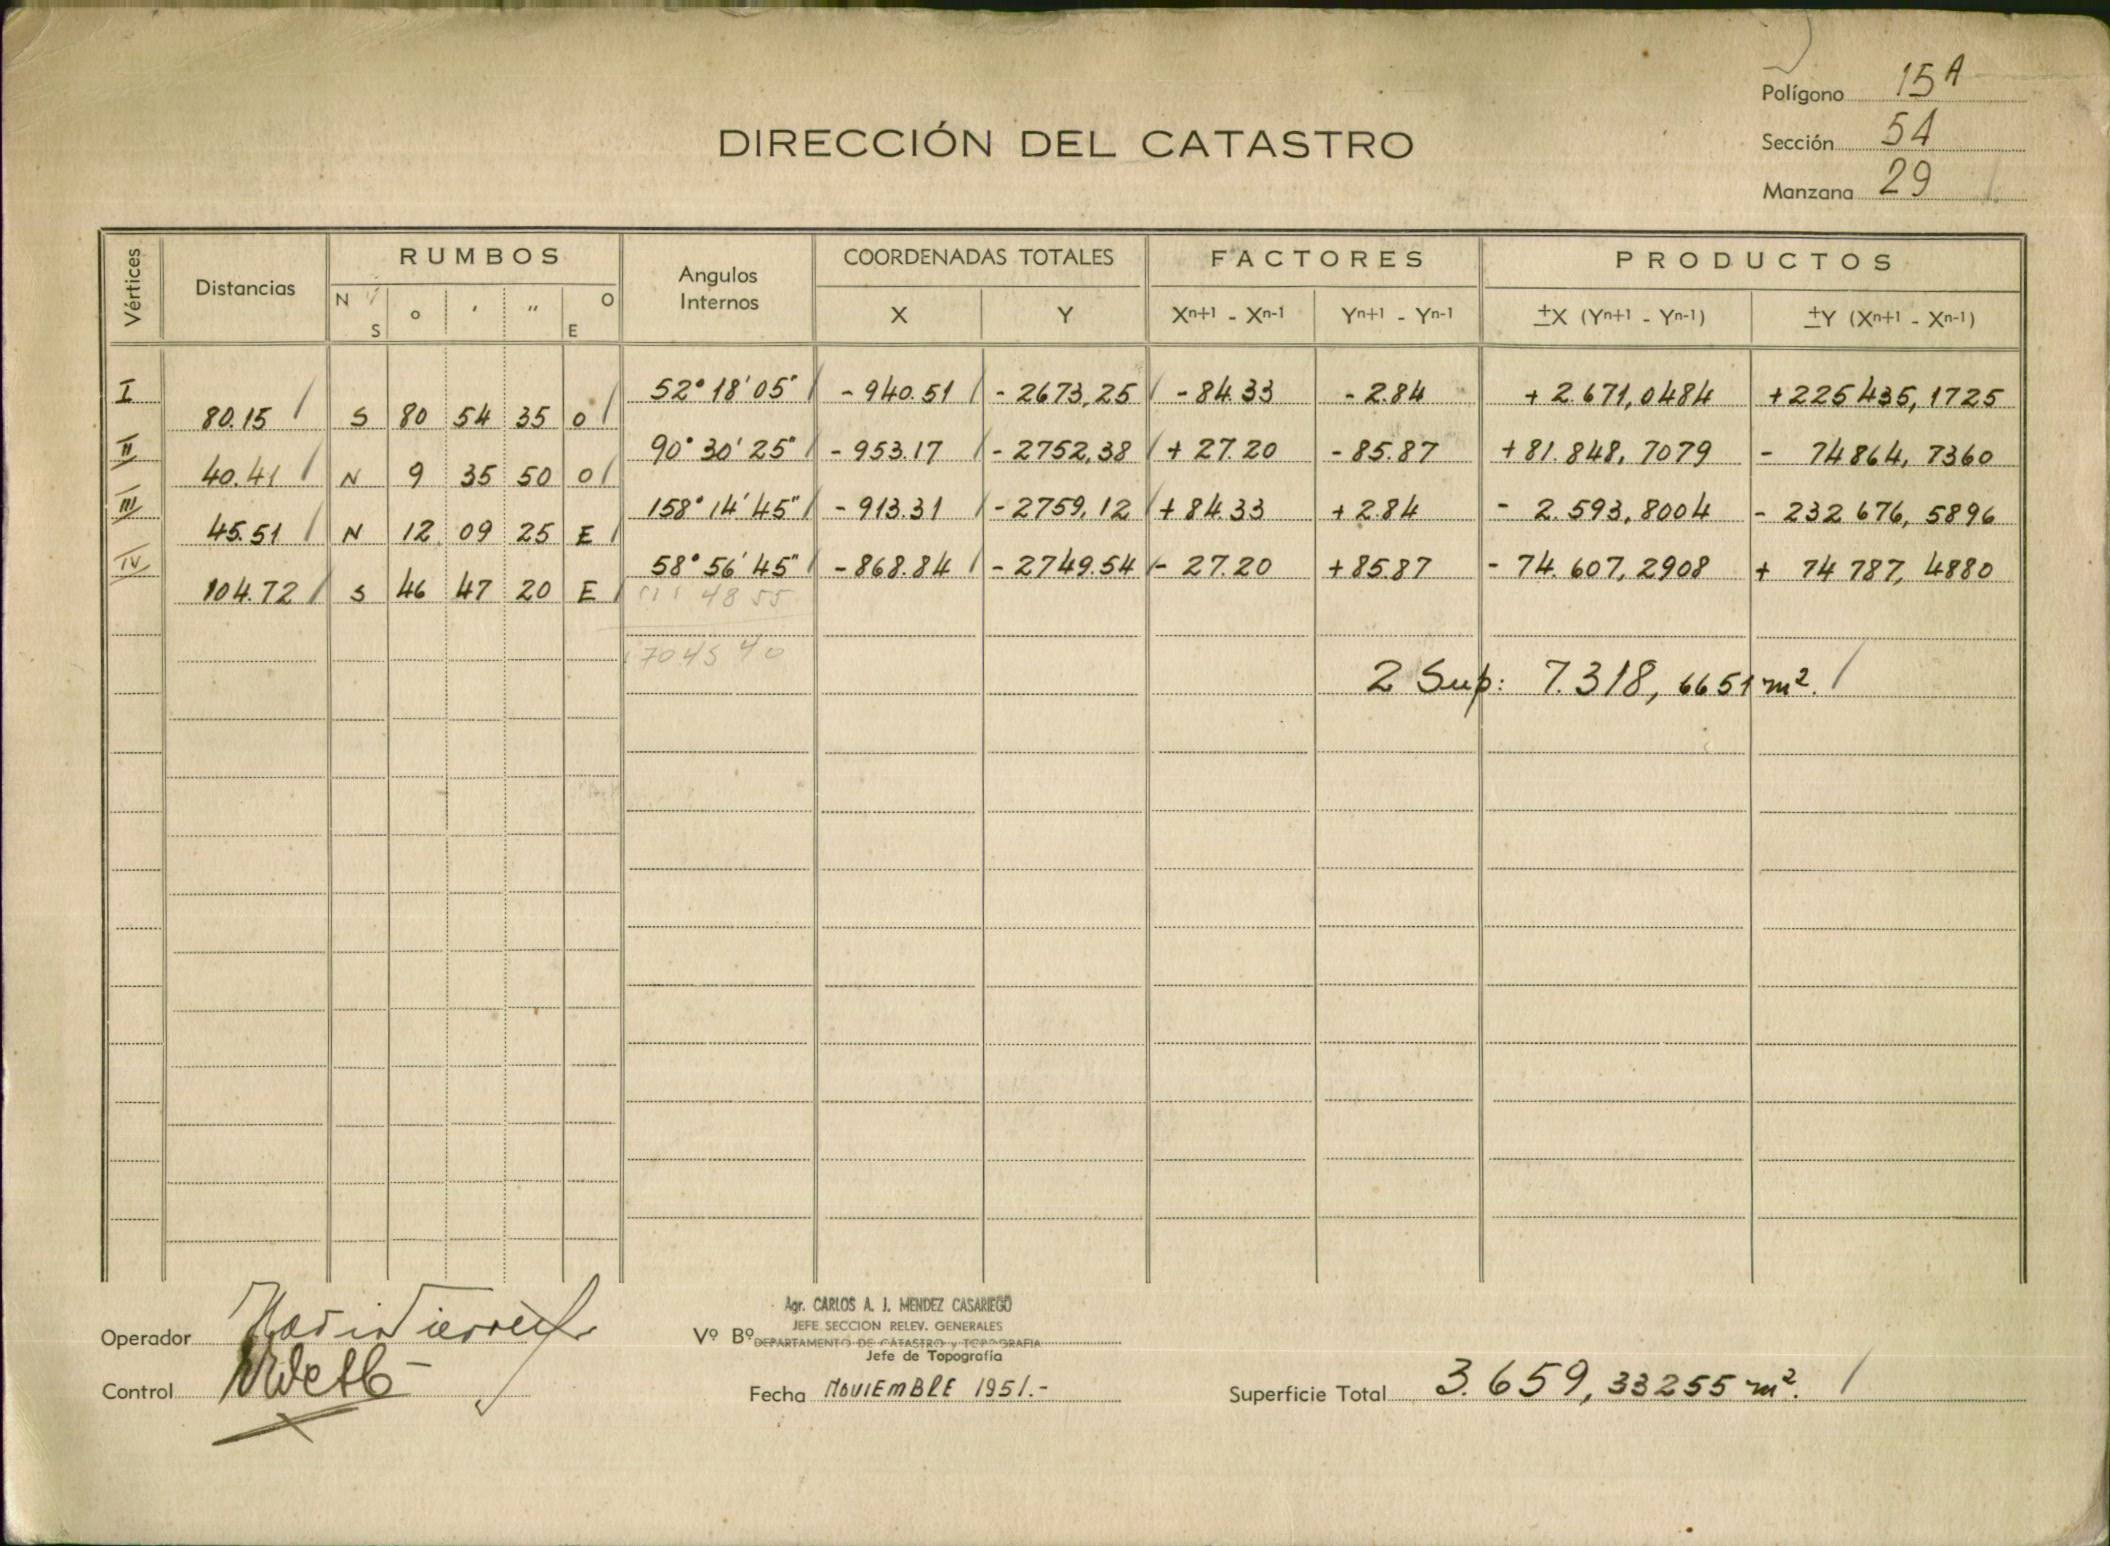 Polígono 15A
DIRECCIÓN DEL CATASTRO
Sección 54
Manzana 29
Vértices
Distancias
RUMBOS
N S ° ' " O E
Angulos Internos
COORDENADAS TOTALES
X Y
FACTORES
Xn+1 - Xn-1 Yn+1 - Yn-1
PRODUCTOS
±X (Yn+1 - Yn-1) ±Y (Xn+1 - Xn-1)
I 52° 18' 05" - 940.51 - 2673,25 - 84.33 - 2.84 + 2.671,0484 + 225435,1725
80.15 S 80 54 35 O
II 90° 30' 25" - 953.17 - 2752,38 + 27.20 - 85.87 + 81.848,7079 - 74864,7360
40.41 N 9 35 50 O
III 158° 14' 45" - 913.31 - 2759,12 + 84.33 + 2.84 - 2.593,8004 - 232676,5896
45.51 N 12 09 25 E
IV 58° 56' 45" - 868.84 - 2749.54 - 27.20 + 85.87 - 74.607,2908 + 74787,4880
104.72 S 46 47 20 E
48 55
2 Sup: 7.318,6651 m².
Agr. CARLOS A. J. MENDEZ CASARIEGO
JEFE SECCION RELEV. GENERALES
Operador
Vº Bº DEPARTAMENTO DE CATASTRO y TOPOGRAFIA
Jefe de Topografía
Control
Fecha NOVIEMBRE 1951.-
Superficie Total 3.659,33255 m².